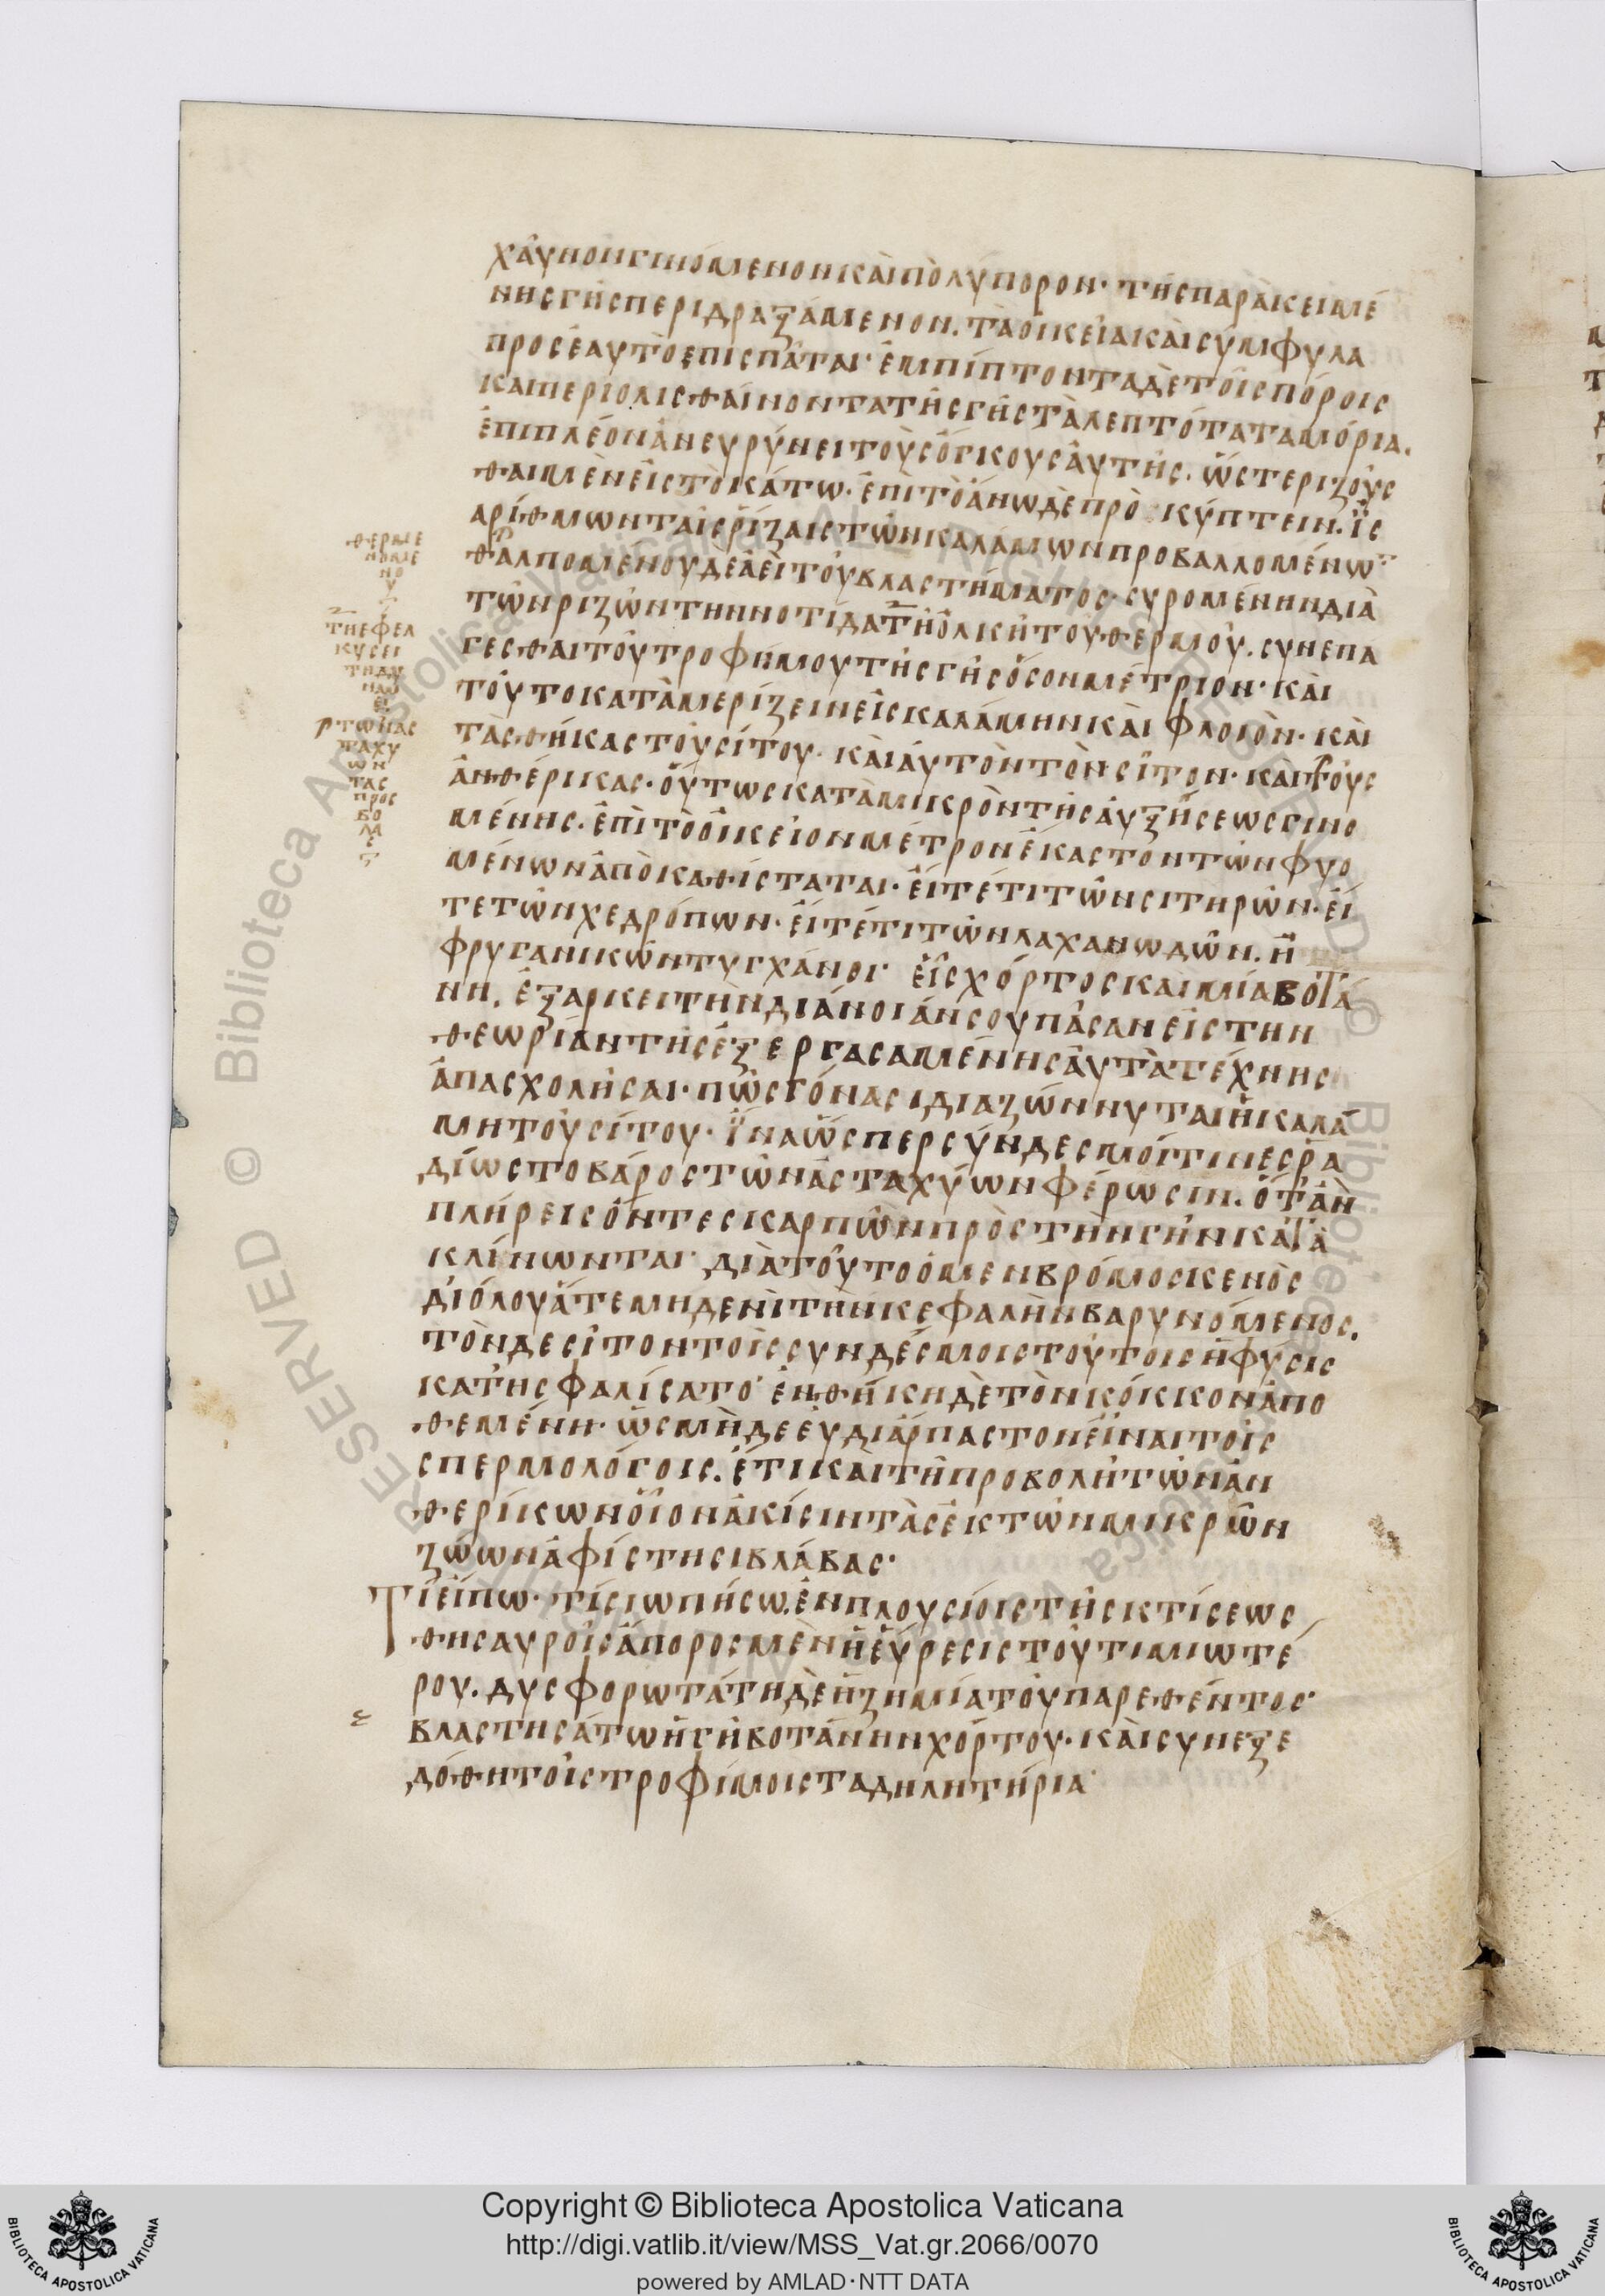 χαῦνον γινόμενον καὶ πολύπορον· τῆς παρακειμέ
νης γῆς περιδραξάμενον. τὰ οἰκεῖα καὶ σύμφυλα
προς ἑαυτὸ ἐπισπᾶται· ἐμπίπτοντα δὲ τοῖς πόροις
και περιολισθαίνοντα τῆς γῆς τὰ λεπτότατα μόρια.
ἐπιπλέον ἀνευρύνει τοὺς ὄγκους αὐτῆς. ὥστε ριζοῦς
θαι μὲν εἰς τὸ κάτω· ἐπὶ τὸ ἄνω δὲ προκύπτειν. ἰς
αρίθμων ταῖς ῥίζαις τῶν καλάμων προβαλλομένων
θαλπομένου δε ἀεὶ τοῦ βλαστήματος· συρομένην διὰ
τῶν ριζῶν την νοτίδα τῆ ὁλκῆ τοῦ θερμοῦ. συνεπα
γεσθαι τοῦ τροφίμου τῆς γῆς ὅσον μέτριον· καὶ
τοῦτο καταμερίζειν εἰς καλάμην καὶ φλοιὸν· καὶ
τὰς θήκας τοῦ σίτου· καὶ αὐτὸν τὸν σῖτον· καὶ τοὺς
ἀνθέρικας· οὕτως κατὰ μικρὸν τῆς αὐξήσεως γινο
μένης. ἐπὶ τὸ οἰκεῖον μέτρον ἕκαστον τῶν φυο
μένων ἀποκαθίσταται· εἴτέ τι τῶν σιτηρῶν· εἴ
τε τῶν χεδρόπων· εἴτέ τι τῶν λαχανωδῶν. ἢ
φρυγανικῶν τυγχάνοι· εἷς χόρτος και μία βοτά
νη. ἐξαρκει τὴν διάνοιάν σου πᾶσαν εἰς την
θεωρίαν τῆς ἐξεργασαμένης αὐτὰ τέχνης
ἀπασχολῆσαι· πῶς γόνασι διαζώννυται ἡ καλά
μη τοῦ σίτου· ἵνα ὥσπερ σύνδεσμοί τινες ῥα
δίως το βάρος τῶν ἀσταχύων φέρωσιν. ὅταν
πλήρεις ὄντες καρπῶν πρὸς τὴν γῆν κατα
κλίνωνται· διὰ τοῦτο ὁ μεν βρόμος κενὸς
διόλου ἅτε μηδενὶ τὴν κεφαλὴν βαρυνόμενος.
τὸν δε σῖτον τοῖς συνδέσμοις τούτοις ἡ φύσις
κατησφαλίσατο· ἐν θήκη δὲ τὸν κόκκον ἀπο
θεμένη· ὡς μὴδε εὐδιάρπαστον εἶναι τοῖς
σπερμολόγοις. ἔτι καὶ τῆ προβολῆ τῶν ἀν
θερίκων οἷον ἀκίσιν τὰς ἐκ τῶν μικρῶν
ζώων ἀφίστησι βλάβας·
Τί εἴπω· τί σιωπήσω. ἐν πλουσίοις τῆς κτίσεως
θησαυροῖς ἄπορος μὲν ἡ εὕρεσις τοῦ τιμιωτέ
ρου. δυσφορωτάτη δὲ ἡ ζημία τοῦ παρεθέντος·
βλαστησάτω ἡ γῆ βοτάνην χόρτου· καὶ συνεξε
δόθη τοῖς τροφίμοις τα δηλητήρια·
θερμε
νομε
νο
υ
τη εφελ
κυσει
ρ των ας
ταχυ
ων
τας
προς
βο
λα
ς
Copyright © Biblioteca Apostolica Vaticana
http://digi.vatlib.it/view/MSS_Vat.gr.2066/0070
powered by AMLAD·NTT DATA
BIBLIOTECA APOSTOLICA VATICANA
BIBLIOTECA APOSTOLICA VATICANA